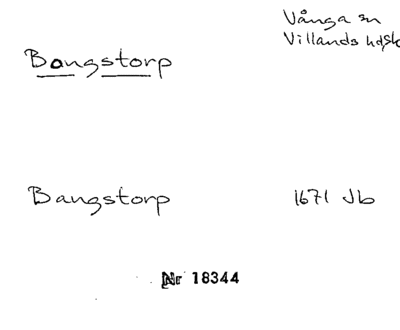 Vånga sn
Villands hd
Bongstorp
Bangstorp
1671 Jb
Nr 18344